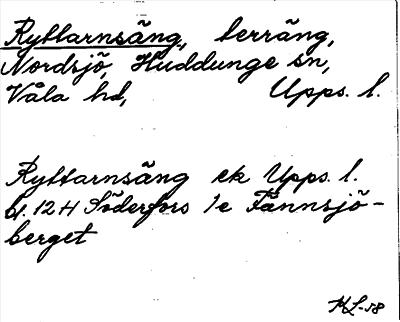 Ryttarnsäng, terräng,
Nordsjö, Huddunge sn,
Våla hd, Upps. l.
Ryttarnsäng ek Upps. l.
bl. 12 H Söderfors 1e Tännsjö-
berget
ML-58